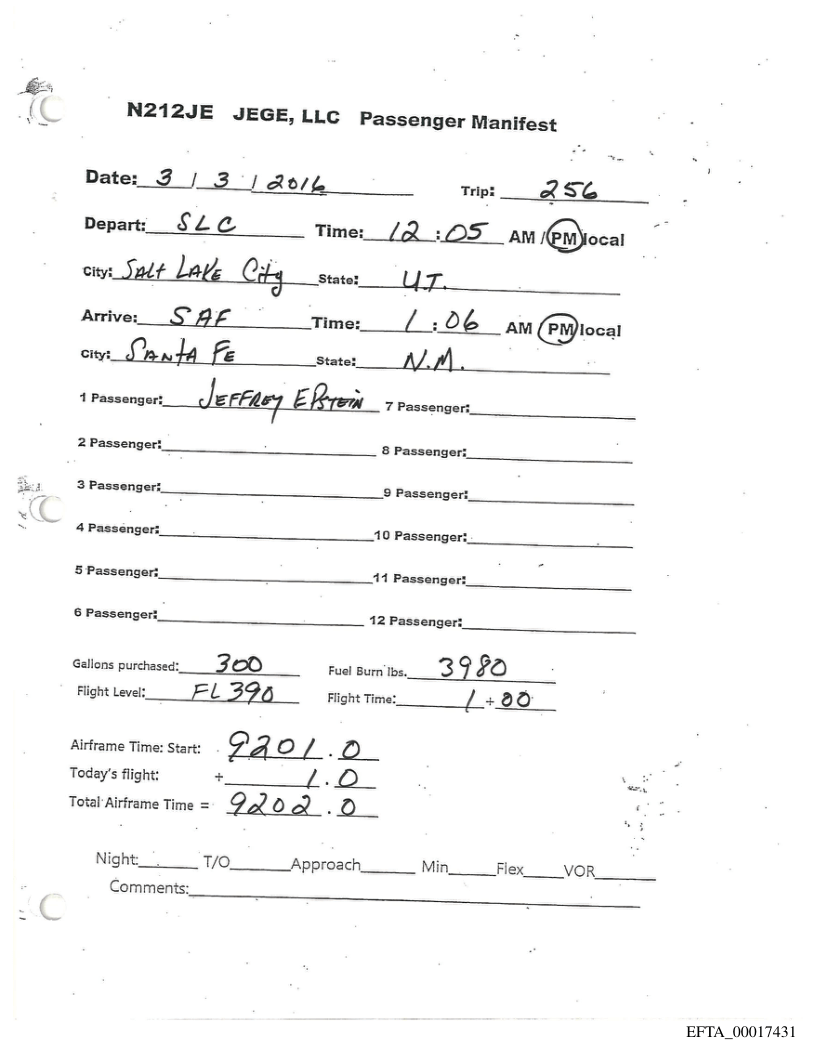 N212JE JEGE, LLC Passenger Manifest
Date: 3 / 3 / 2016 Trip: 256
Depart: SLC Time: 12:05 AM / PM local
City: SALT LAKE City State: UT.
Arrive: SAF Time: 1:06 AM PM local
City: SANTA FE State: N.M.
1 Passenger: JEFFREY EPSTEIN 7 Passenger:
2 Passenger: 8 Passenger:
3 Passenger: 9 Passenger:
4 Passenger: 10 Passenger:
5 Passenger: 11 Passenger:
6 Passenger: 12 Passenger:
Gallons purchased: 300 Fuel Burn lbs. 3980
Flight Level: FL390 Flight Time: 1 + 00
Airframe Time: Start: 9201.0
Today's flight: + 1.0
Total Airframe Time = 9202.0
Night: T/O Approach Min Flex VOR
Comments:
EFTA_00017431